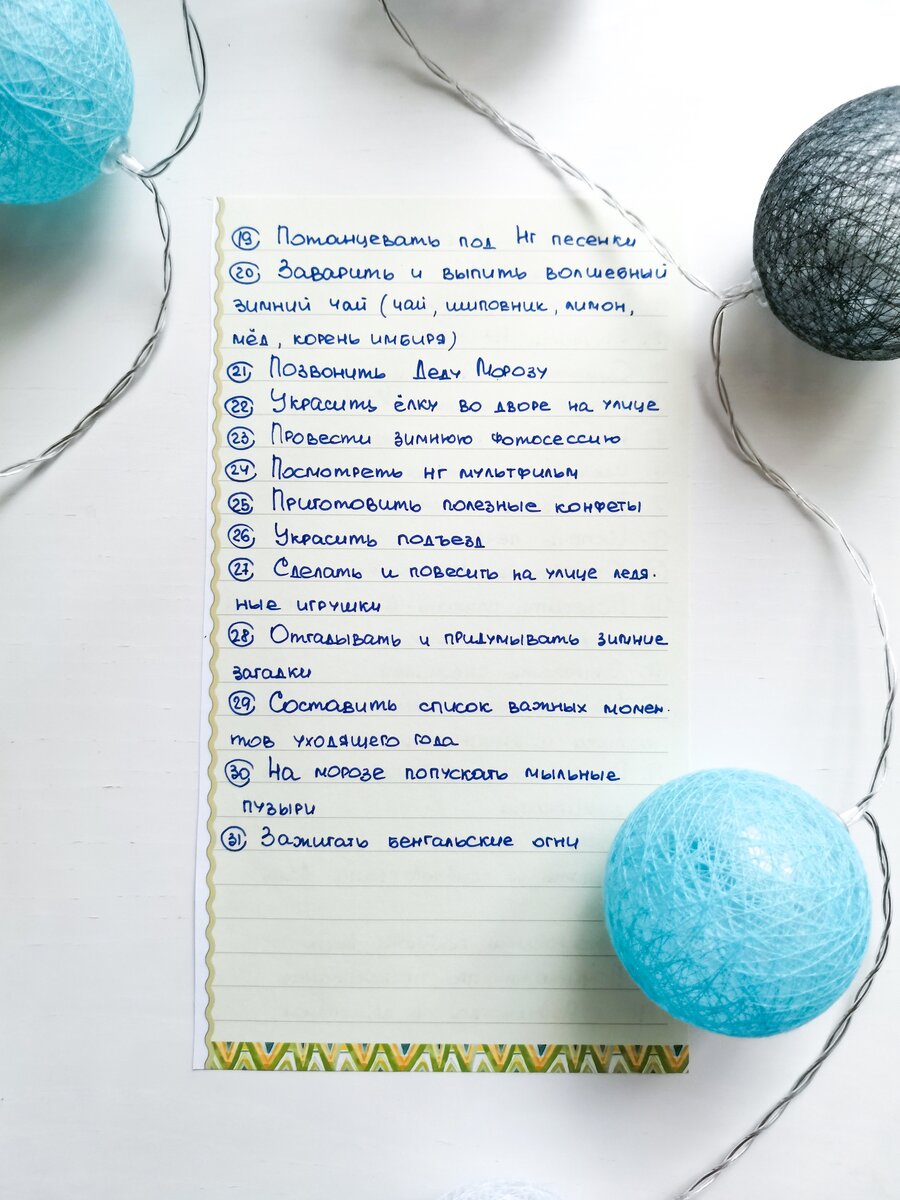 19 Потанцевать под Нг песенки
20 Заварить и выпить волшебный
зимний чай (чай, шиповник, лимон,
мёд, корень имбиря)
21 Позвонить Деду Морозу
22 Украсить ёлку во дворе на улице
23 Провести зимнюю фотосессию
24 Посмотреть нг мультфильм
25 Приготовить полезные конфеты
26 Украсить подъезд
27 Сделать и повесить на улице ледя-
ные игрушки
28 Отгадывать и придумывать зимние
загадки
29 Составить список важных момен-
тов уходящего года
30 На морозе попускать мыльные
пузыри
31 Зажигать бенгальские огни